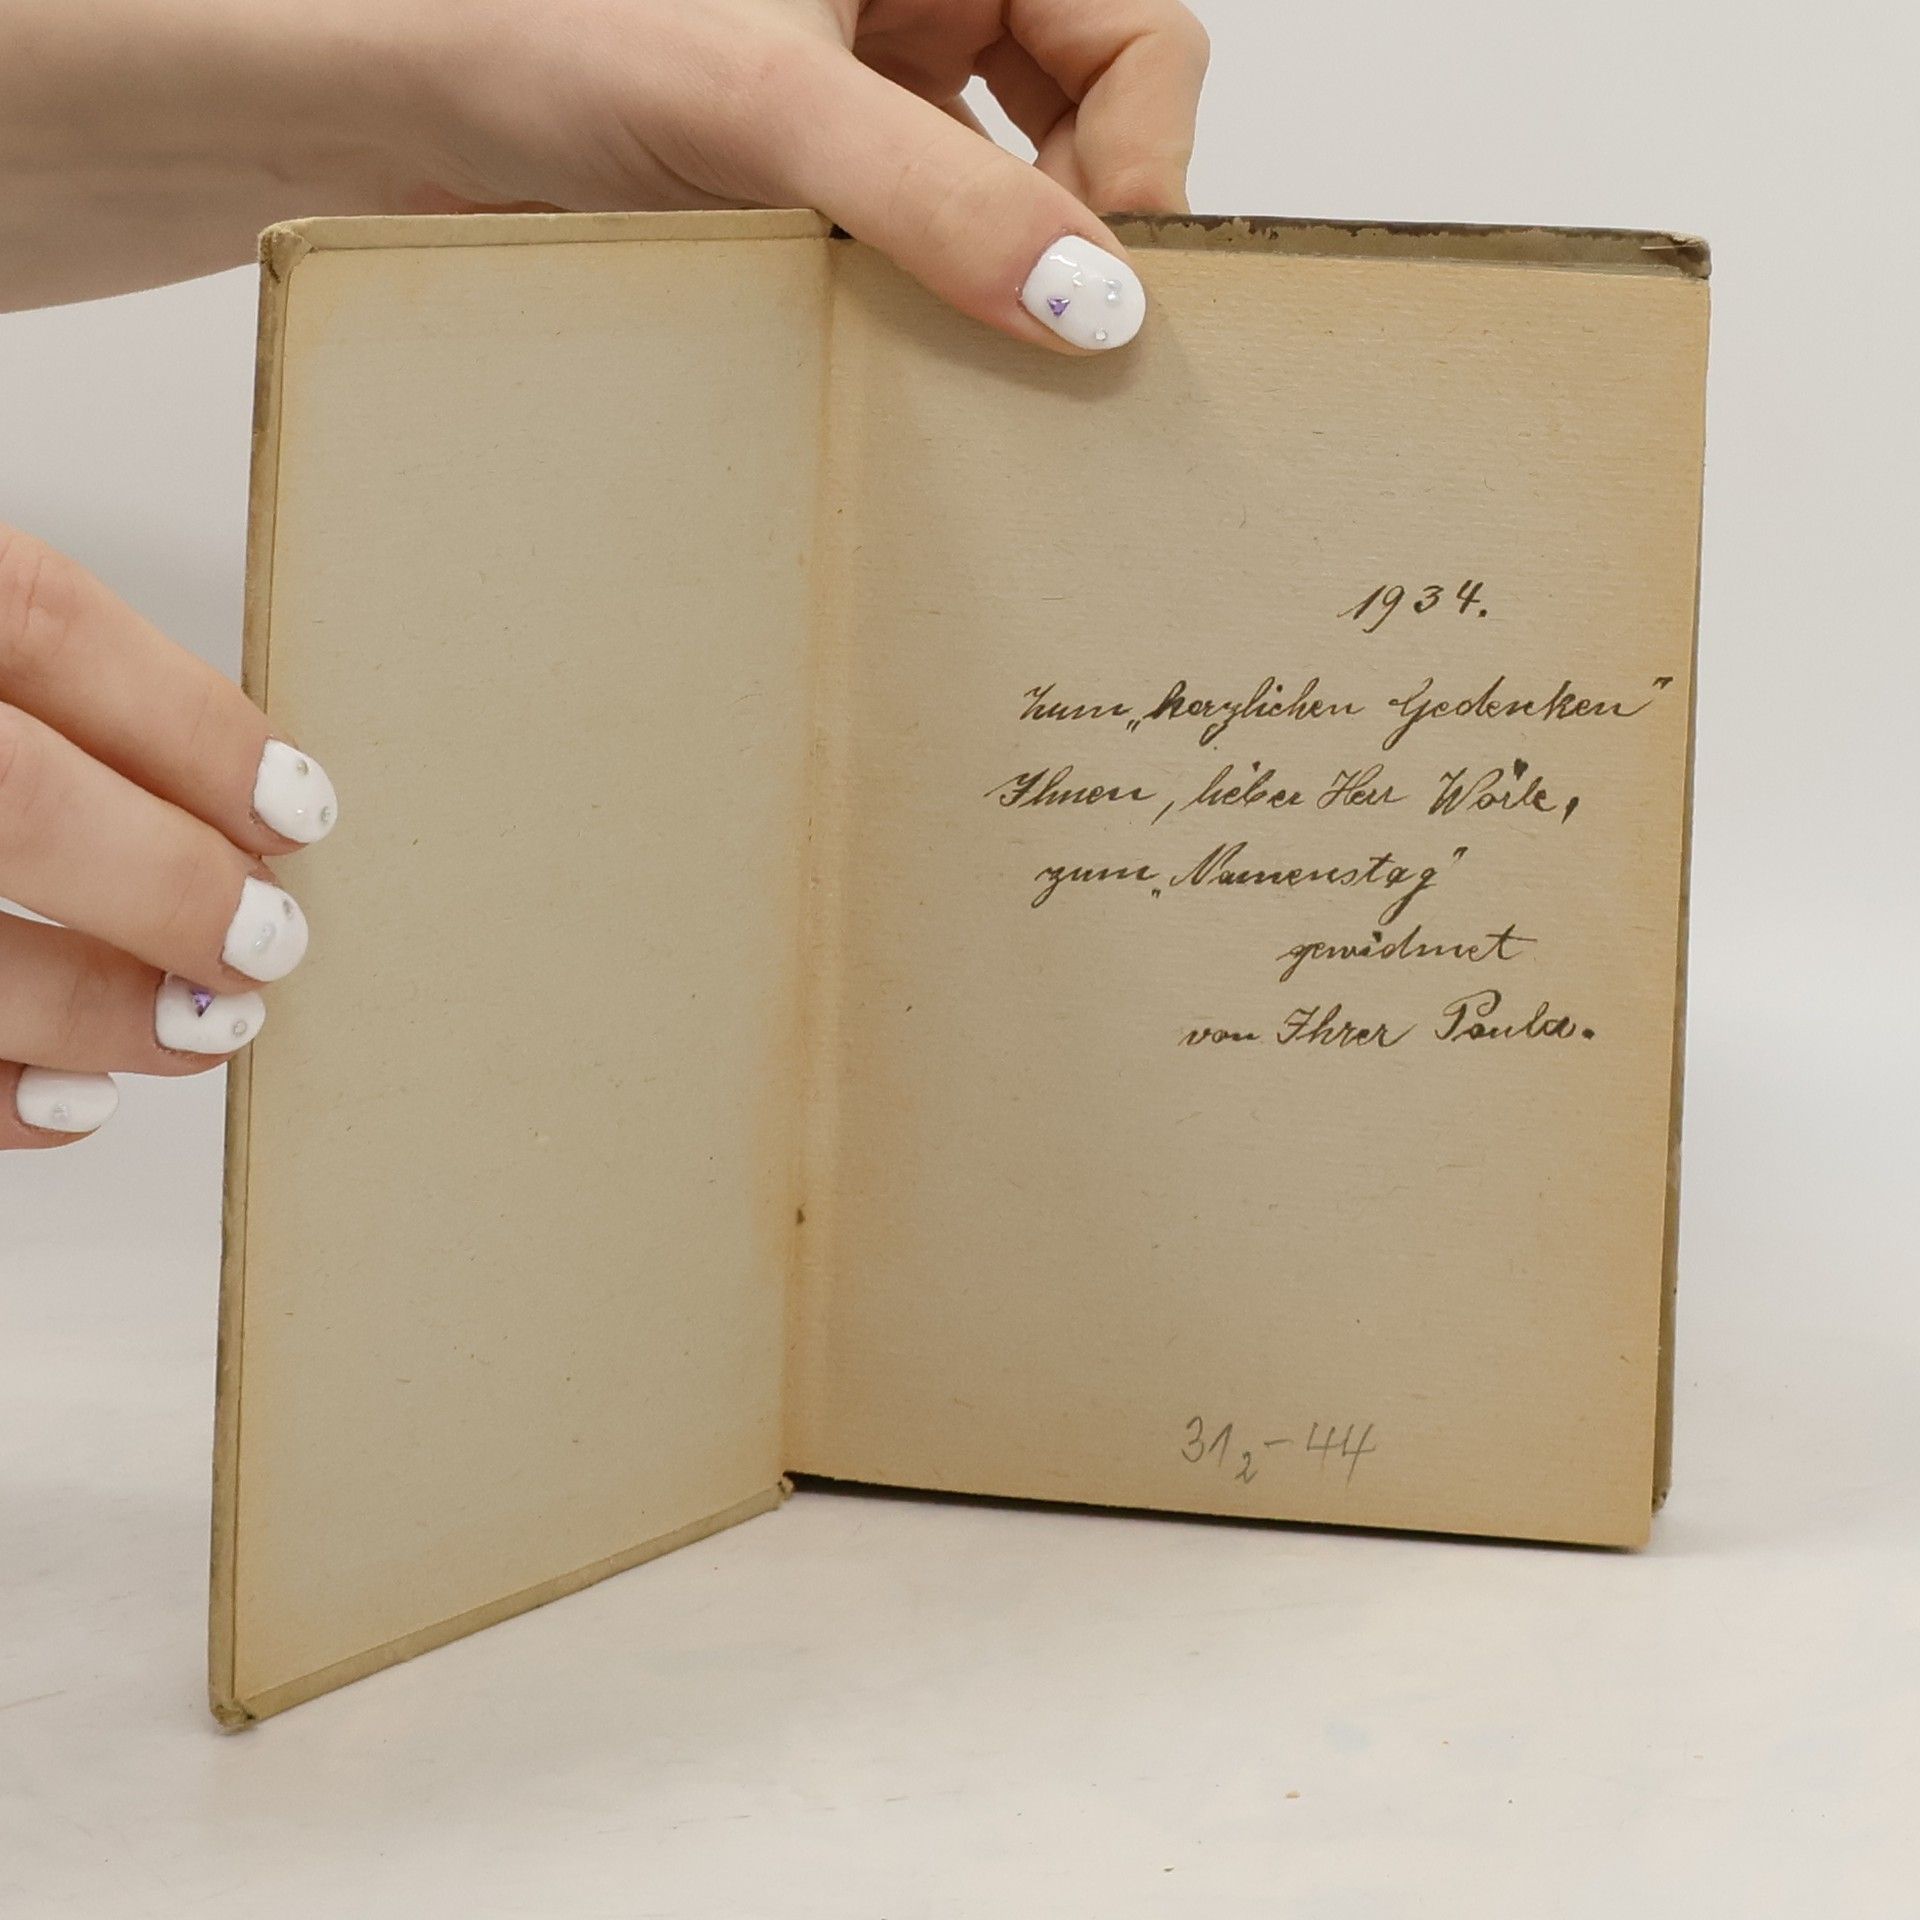 1934.
Zum „herzlichen Gedenken"
Ihnen, lieber Herr Wörle,
zum „Namenstag"
gewidmet
von Ihrer Paula.
31₂-44